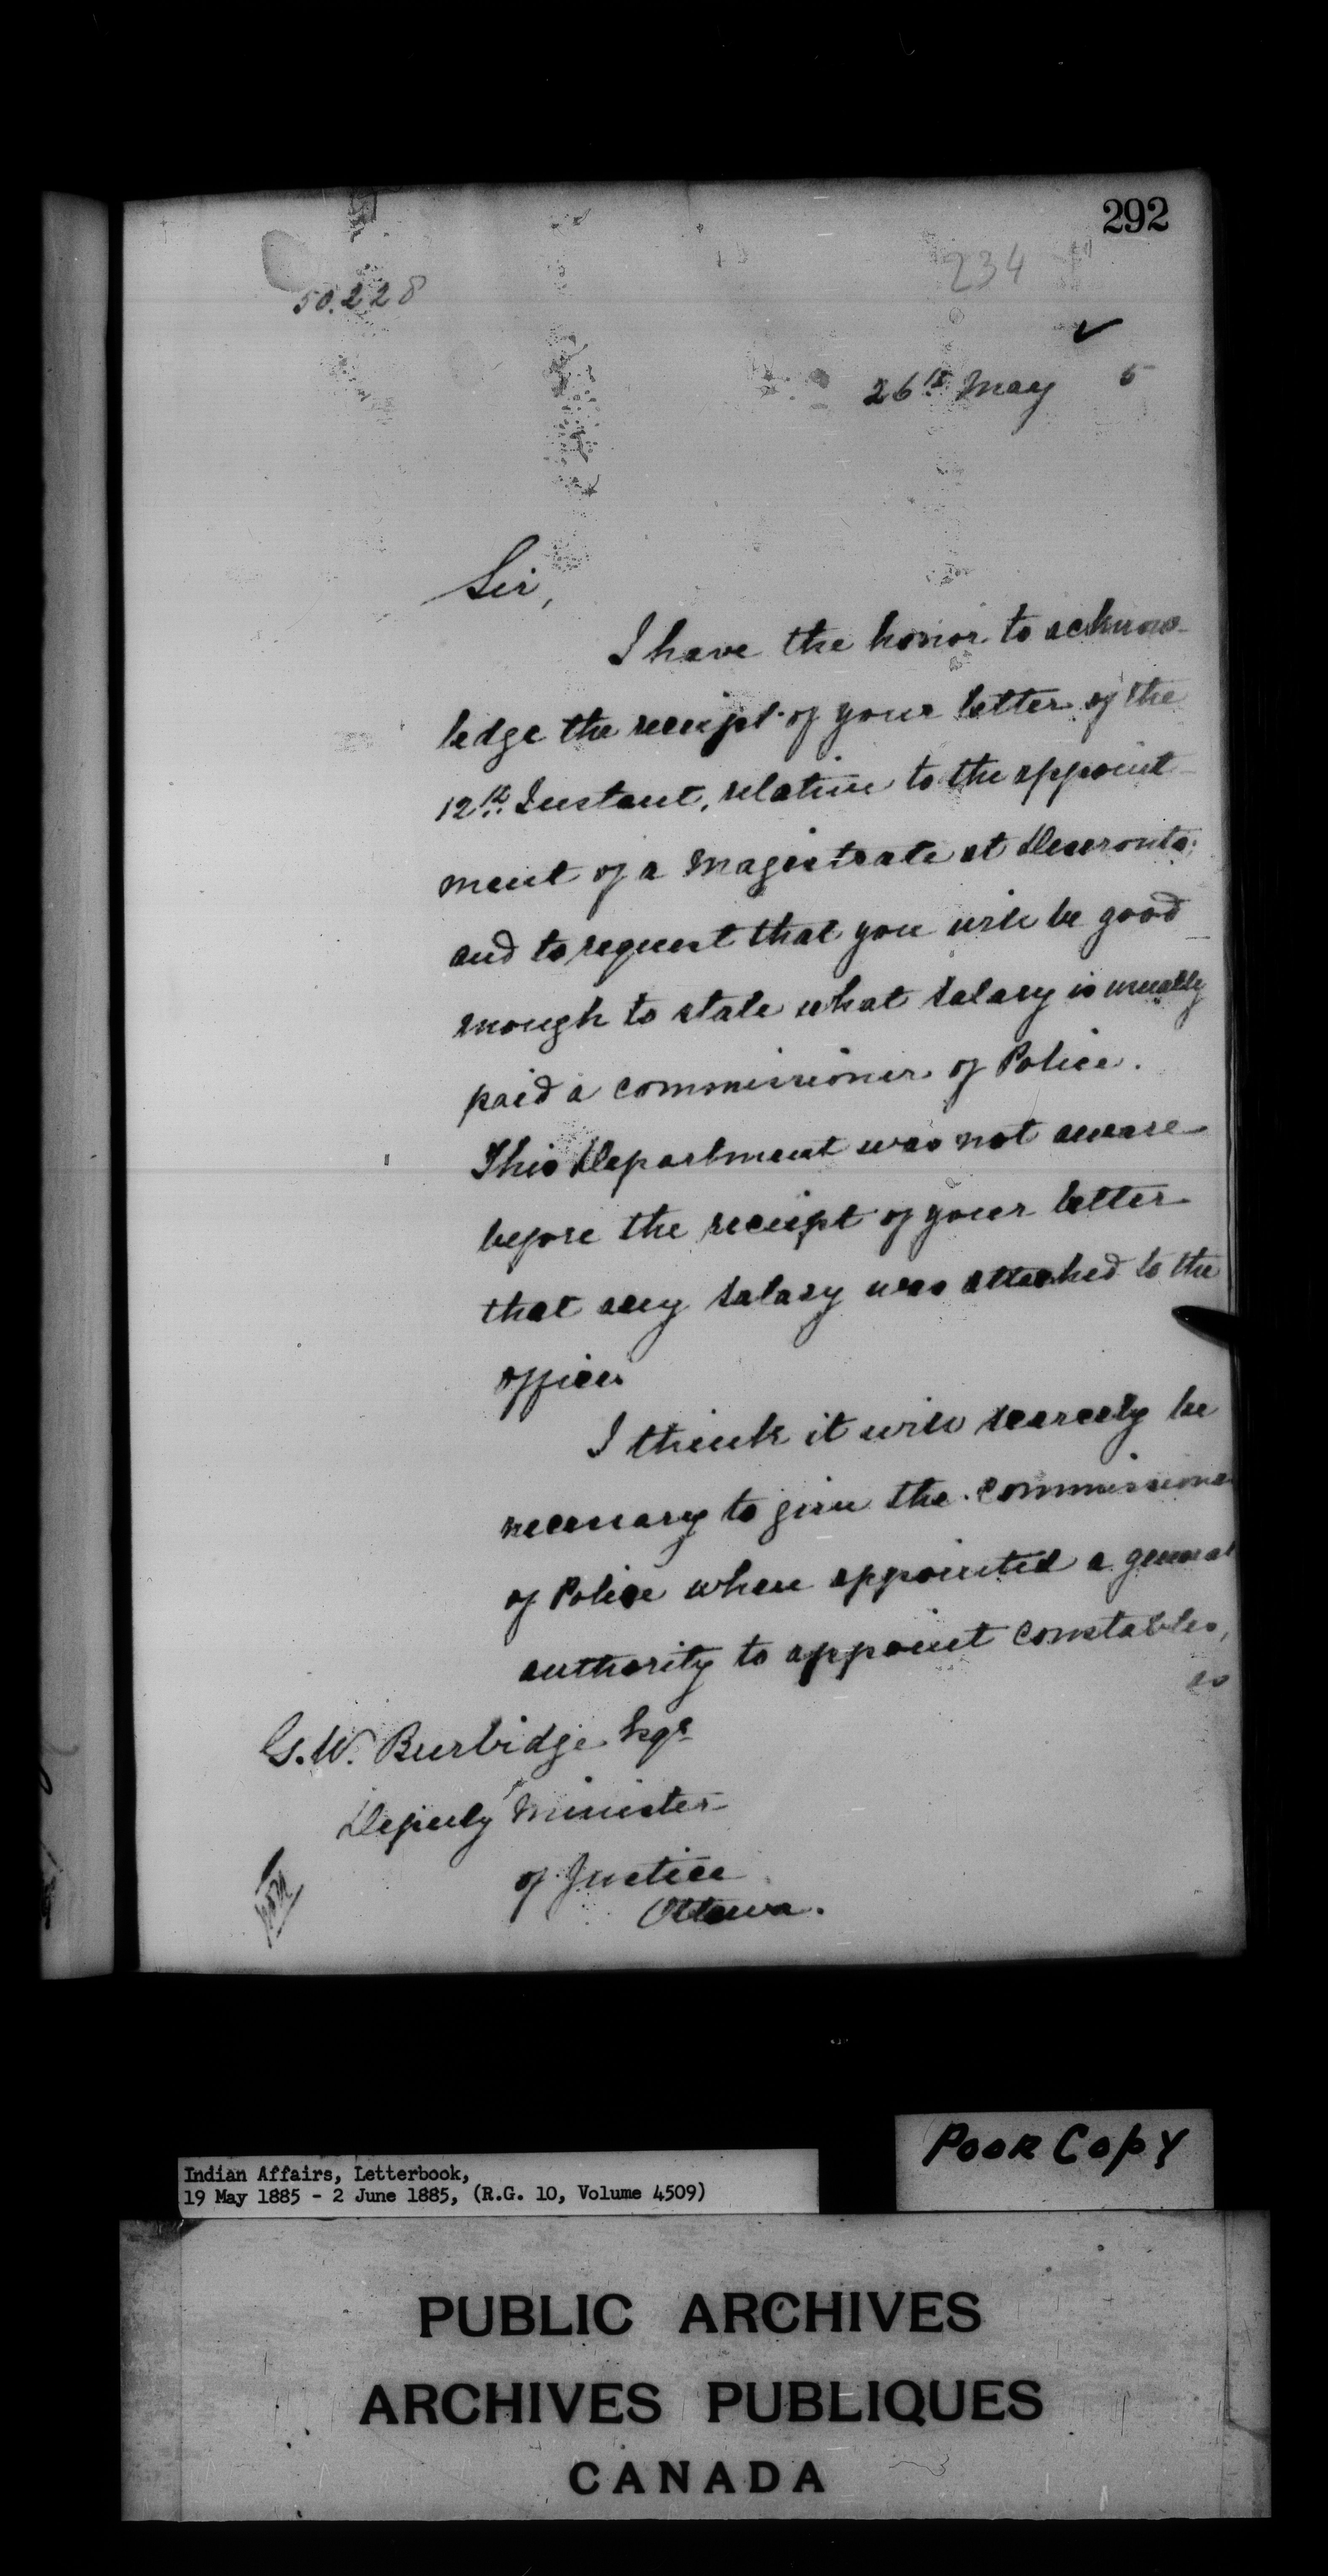 292
234
50.228
26th May 5
Sir,
I have the honor to acknow-
ledge the receipt of your letter of the
12th Instant, relative to the appoint-
ment of a Magistrate at Deseronto,
and to request that you will be good
enough to state what salary is usually
paid a Commissioner of Police.
This Department was not aware
before the receipt of your letter
that any salary was attached to the
office.
I think it will scarcely be
necessary to give the Commissioner
of Police when appointed a general
authority to appoint Constables,
as
G.W. Burbidge Esqr
Deputy Minister
of Justice
Ottawa.
Poor Copy
Indian Affairs, Letterbook,
19 May 1885 - 2 June 1885, (R.G. 10, Volume 4509)
PUBLIC ARCHIVES
ARCHIVES PUBLIQUES
CANADA